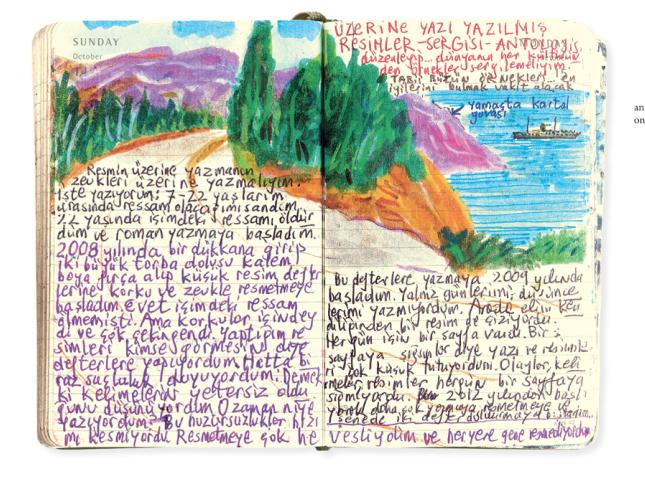 SUNDAY
October
Resmin üzerine yazmanın
zevkleri üzerine yazmalıyım.
İşte yazıyorum: 7-22 yaşlarım
arasında ressam olacağımı sandım.
22 yaşında içimdeki ressamı öldür
düm ve roman yazmaya başladım.
2008 yılında bir dükkana girip
iki büyük torba dolusu kalem
boya fırça alıp küçük resim defter
lerine korku ve zevkle resmetmeye
başladım. Evet içimdeki ressam
ölmemişti. Ama korkular içindey
di ve çok çekingendi. Yaptığım re
simleri kimse görmesin diye
defterlere yapıyordum. Hatta bi
raz suçluluk duyuyordum: Demek
ki kelimelerin yetersiz oldu
ğunu düşünüyordum. O zaman niye
yazıyordum? Bu huzursuzluklar hızı
mı kesmiyordu. Resmetmeye çok he
ÜZERİNE YAZI YAZILMIŞ
RESİMLER-SERGİSİ-
düzenlerip... dünyanın her
den örnekler sergilemeliyim.
TABİİ BUNUN ÖRNEKLERİ... en
iyilerini bulmak vakit alacak
yamaçta kartal
yuvası
Bu defterlere yazmaya 2009 yılında
başladım. Yalnız günlerimi, düşünce
lerimi yazmıyordum. Arada elim ken
diliğinden bir resim de çiziyordu.
Hergün için bir sayfa vardı. Bir
sayfaya sığsınlar diye yazı ve resimle
ri çok küçük tutuyordum. Olaylar, keli
meler, resimler hergün bir sayfaya
sığmıyordu. 2012 yılından başlı
yarak daha çok yazmaya resmetmeye ve
senede iki defter doldurmaya başladım.
vesliydim ve her yere gene resmediyordum
an
on